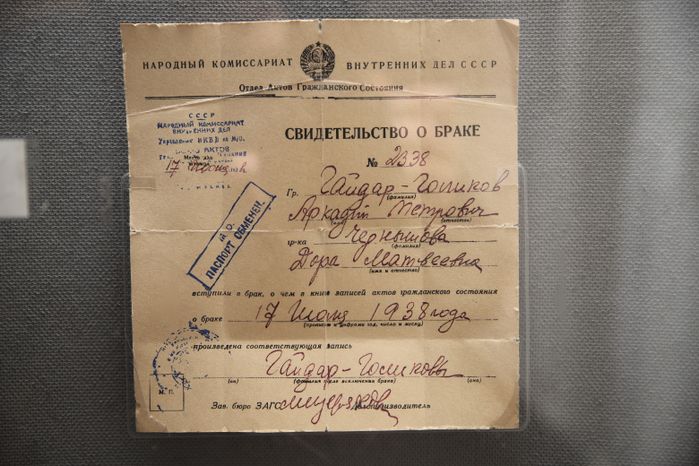 НАРОДНЫЙ КОМИССАРИАТ ВНУТРЕННИХ ДЕЛ СССР
Отдел Актов Гражданского Состояния
СССР
НАРОДНЫЙ КОМИССАРИАТ
ВНУТРЕННИХ ДЕЛ
Управление НКВД по М/О.
АКТОВ
17
СВИДЕТЕЛЬСТВО О БРАКЕ
№ 2338
Гр. Гайдар-Голиков
(фамилия)
Аркадий Петрович
(отчество)
гр-ка Чернышова
(фамилия)
Дора Матвеевна
(имя и отчество)
М.О.
ПАСПОРТ ОБМЕНЕН.
вступили в брак, о чем в книге записей актов гражданского состояния
о браке 17 Июля 1938 года
(прописью и цифрами год, число и месяц)
произведена соответствующая запись
Гайдар-Голиковы
(он) (фамилия после заключения брака) (она)
М. П.
Зав. бюро ЗАГС Делопроизводитель